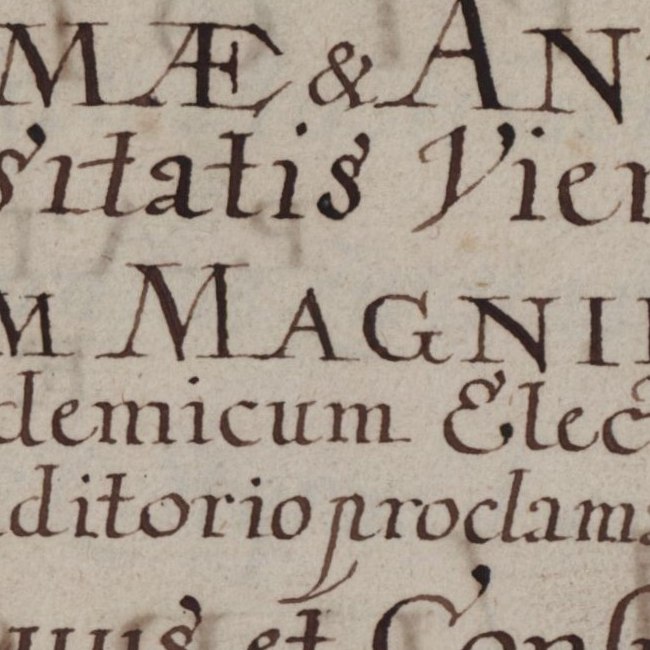 MÆ & AN
sitatis Vien
M MAGNI
demicum Elec
ditorio proclama
uus et Cons